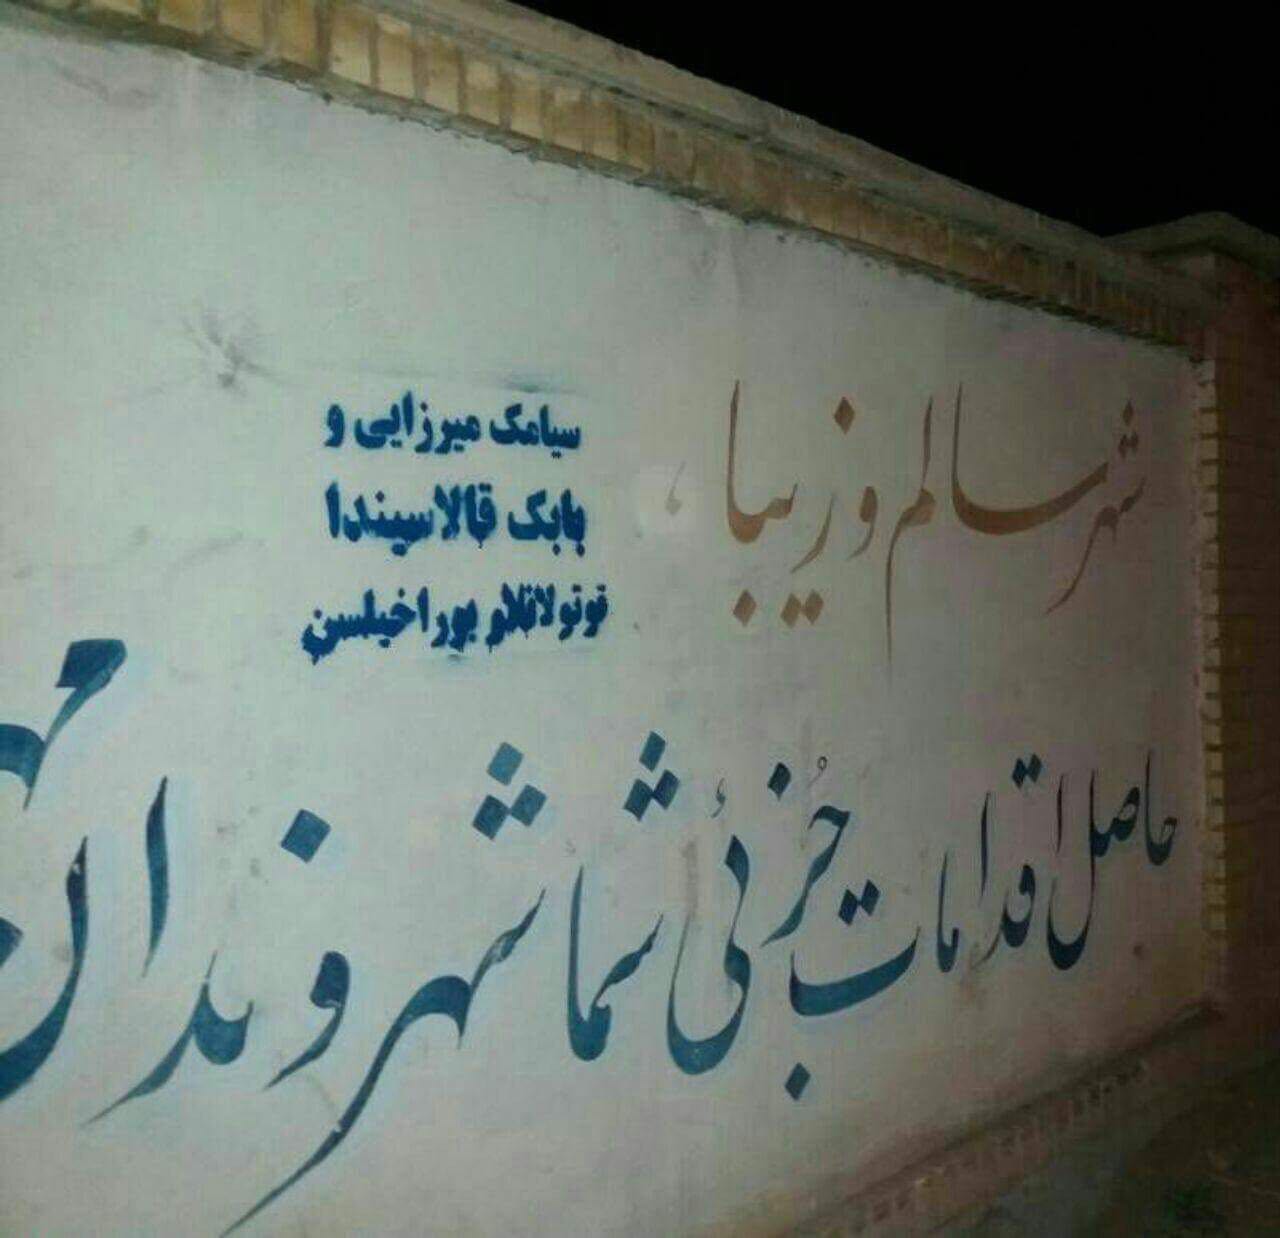 شهر سالم و زیبا،
سیامک میرزایی و
بابک قالاسیندا
توتولانلار بوراخیلسین
حاصل اقدامات جُزئی شما شهروندان